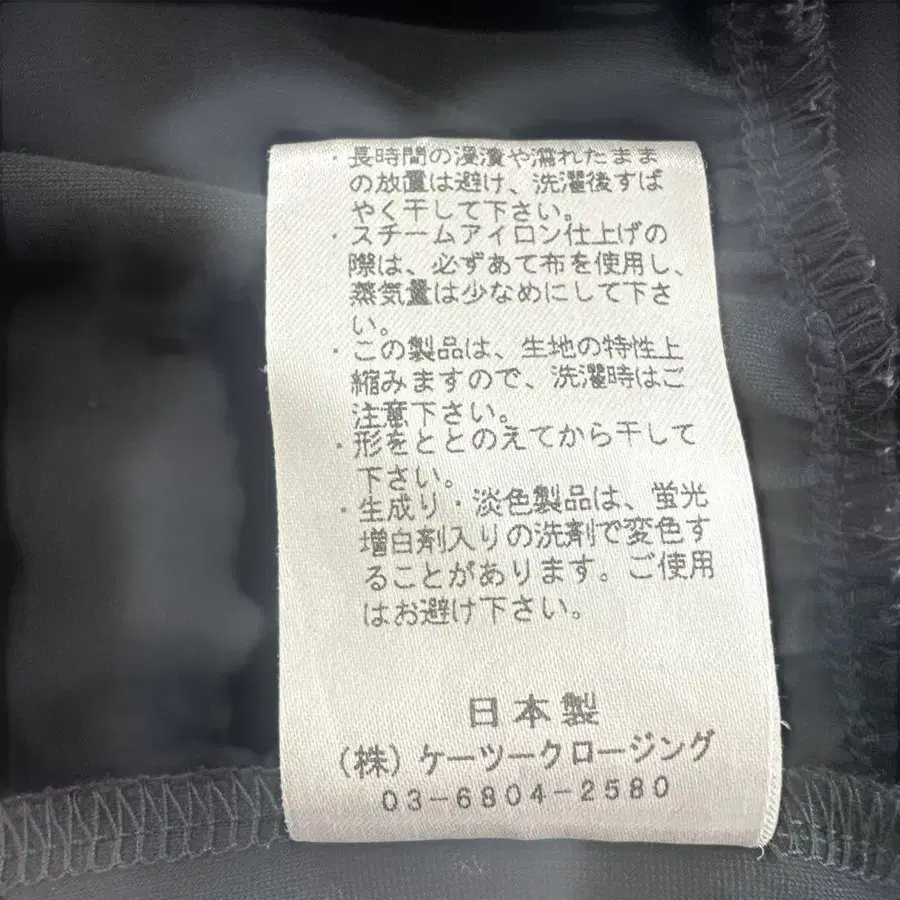 ・長時間の浸漬や濡れたまま
の放置は避け、洗濯後すば
やく干して下さい。
・スチームアイロン仕上げの
際は、必ずあて布を使用し、
蒸気量は少なめにして下さ
い。
・この製品は、生地の特性上
縮みますので、洗濯時はご
注意下さい。
・形をととのえてから干して
下さい。
・生成り・淡色製品は、蛍光
増白剤入りの洗剤で変色す
ることがあります。ご使用
はお避け下さい。
日本製
(株)ケーツークロージング
03-6804-2580